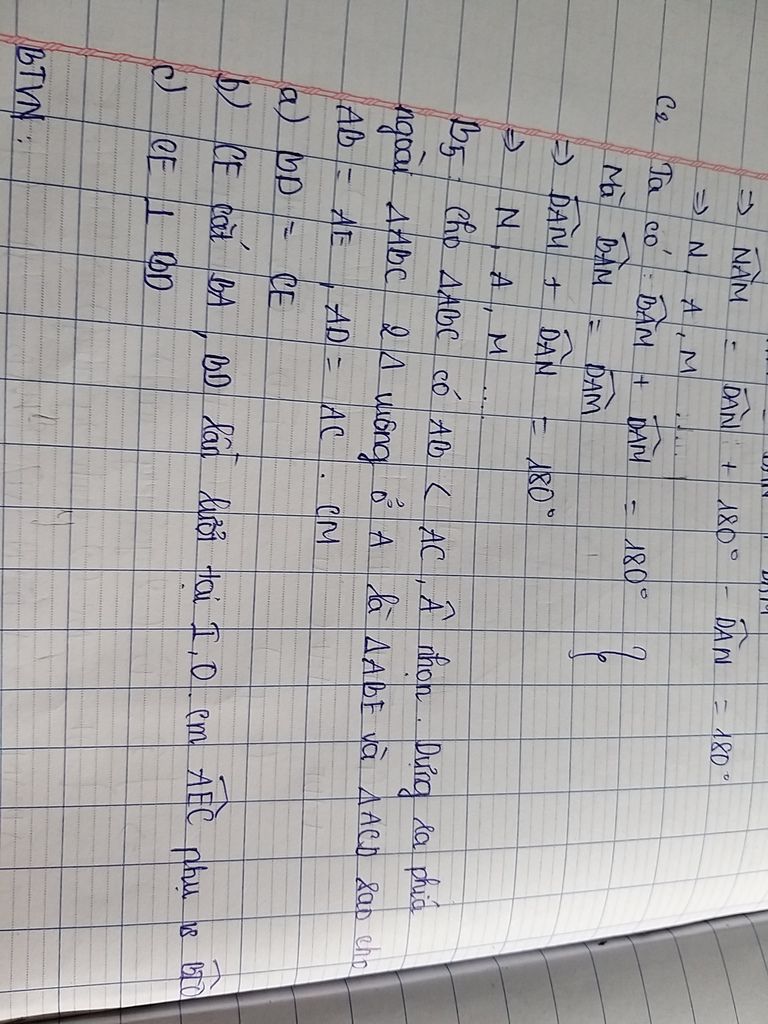 ⇒ N̂AM = D̂AN + 180° - D̂AN = 180°
⇒ N, A, M .....
C2 Ta có: D̂AM + D̂AN = 180° }
Mà B̂AN = D̂AM
⇒ D̂AN + D̂AN = 180°
⇒ N, A, M ....
B5: Cho ΔABC có AB < AC, Â nhọn. Dựng ra phía
ngoài ΔABC 2 Δ vuông ở A là ΔABE và ΔACD sao cho
AB = AE, AD = AC. CM
a) BD = CE
b) CE cắt BA, BD lần lượt tại I, O. cm ÂEC phụ vs B̂IO
c) CE ⊥ BD
BTVN: